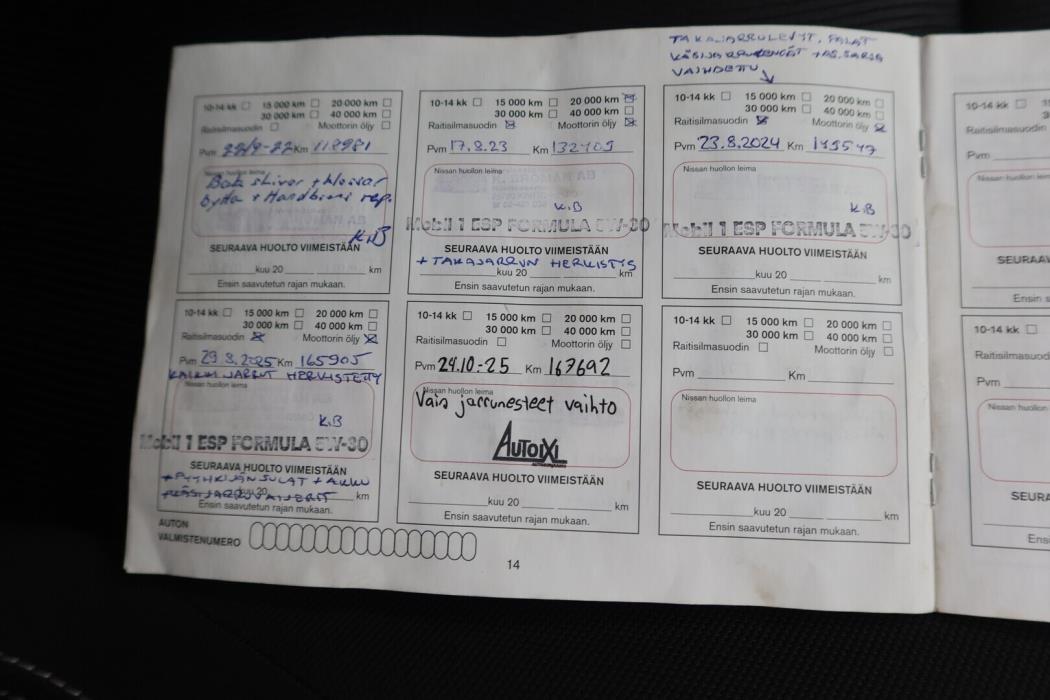 TAKAJARRULEVYT, PALAT
KÄSIJARRUKENGÄT + AS.SARJA
VAIHDETTU
10-14 kk 15 000 km 20 000 km
30 000 km 40 000 km
Raitisilmasuodin Moottorin öljy
Pvm 22/9-22 Km 118981
Nissan huollon leima
Bak skivor + klossar
bytta + Handbroms rep.
K.B
SEURAAVA HUOLTO VIIMEISTÄÄN
kuu 20 km
Ensin saavutetun rajan mukaan.
10-14 kk 15 000 km 20 000 km
30 000 km 40 000 km
Raitisilmasuodin Moottorin öljy
Pvm 17.8.23 Km 132705
Nissan huollon leima
K.B
Mobil 1 ESP FORMULA 5W-30
SEURAAVA HUOLTO VIIMEISTÄÄN
+ TAKAJARRUN HERKISTYS
kuu 20 km
Ensin saavutetun rajan mukaan.
10-14 kk 15 000 km 20 000 km
30 000 km 40 000 km
Raitisilmasuodin Moottorin öljy
Pvm 23.8.2024 Km
Nissan huollon leima
K.B
Mobil 1 ESP FORMULA 5W-30
SEURAAVA HUOLTO VIIMEISTÄÄN
kuu 20 km
Ensin saavutetun rajan mukaan.
10-14 kk
Raitisilmasuodin
Pvm
Nissan huollon
SEURAAV
Ensin s
10-14 kk 15 000 km 20 000 km
30 000 km 40 000 km
Raitisilmasuodin Moottorin öljy
Pvm 29.8.2025 Km 165905
KAIKKI JARRUT HERKISTETTY
Nissan huollon leima
K.B
Mobil 1 ESP FORMULA 5W-30
SEURAAVA HUOLTO VIIMEISTÄÄN
+ PYYHKIJÄNSULAT + AKKU
kuu 20 km
+ KÄSIJARRUVAIJERIT
Ensin saavutetun rajan mukaan.
10-14 kk 15 000 km 20 000 km
30 000 km 40 000 km
Raitisilmasuodin Moottorin öljy
Pvm 24.10.-25 Km 167692
Nissan huollon leima
Vain jarrunesteet vaihto
AUTOIXI
SEURAAVA HUOLTO VIIMEISTÄÄN
kuu 20 km
Ensin saavutetun rajan mukaan.
10-14 kk 15 000 km 20 000 km
30 000 km 40 000 km
Raitisilmasuodin Moottorin öljy
Pvm Km
Nissan huollon leima
SEURAAVA HUOLTO VIIMEISTÄÄN
kuu 20 km
Ensin saavutetun rajan mukaan.
10-14 kk
Raitisilmasuod
Pvm
Nissan huollon
SEURA
Ens
AUTON
VALMISTENUMERO
14